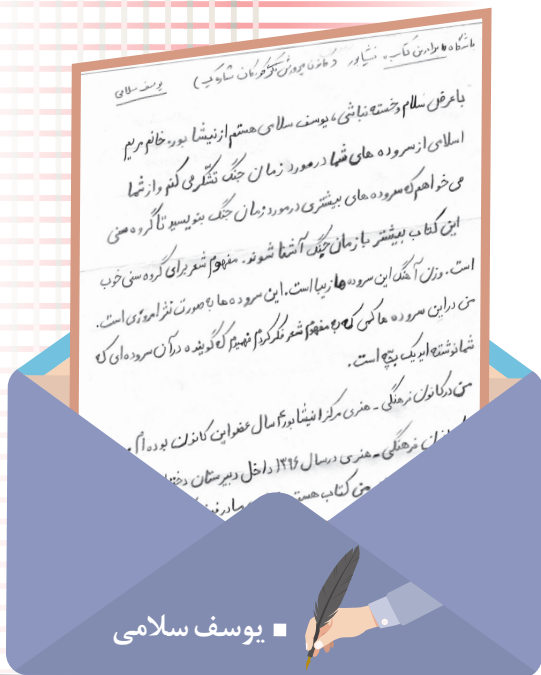 باشگاه هواداران کتاب. نیشابور (کانون پرورش فکر کودکان شماره یک) یوسف سلامی
با عرض سلام و خسته نباشی، یوسف سلامی هستم از نیشابور. خانم مریم
اسلامی از سروده های شما در مورد زمان جنگ تشکر می کنم و از شما
می خواهم که سروده های بیشتری در مورد زمان جنگ بنویسید تا گروه سنی
این کتاب بیشتر با زمان جنگ آشنا شوند. مفهوم شعر برای گروه سنی خوب
است. وزن آهنگ این سروده ها زیبا است. این سروده ها به صورت نثر امروزی است.
من در این سروده ها کمی که به مفهوم شعر فکر کردم فهمیدم که گوینده در آن سروده ای که
شما نوشته اید یک بچه است.
من در کانون فرهنگی - هنری مرکز ۱ نیشابور ۴ سال عضو این کانون بوده ام
فرهنگی - هنری در سال ۱۳۹۶ داخل دبیرستان
من کتاب
یوسف سلامی